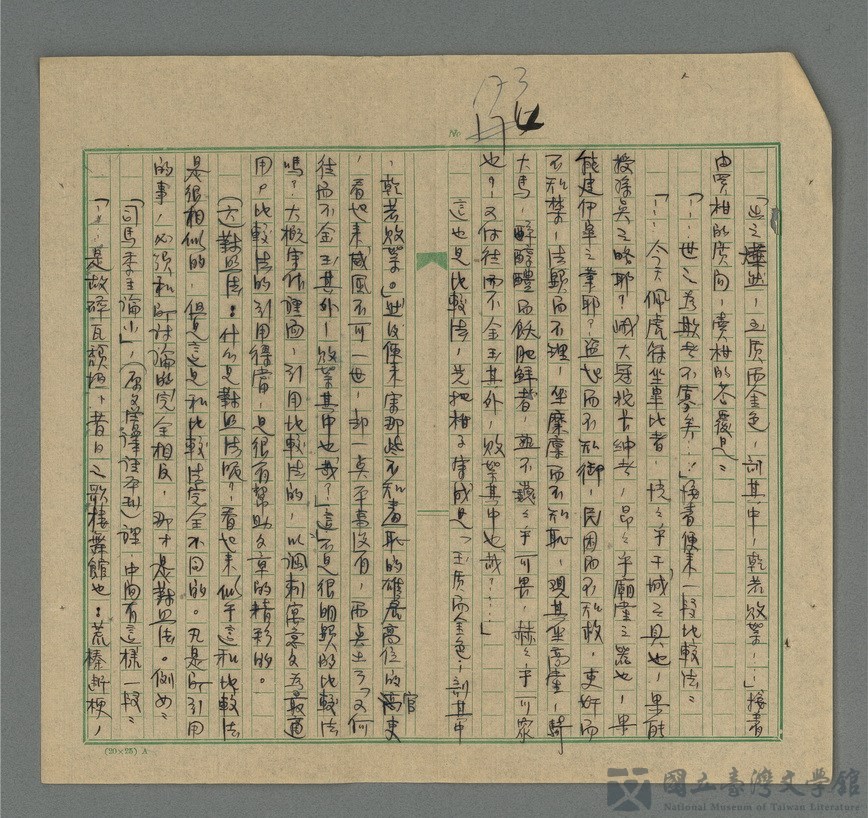 173
174
No
「出之燁然,玉質而金色,剖其中,乾若敗絮…」接著
由買柑的質問,賣柑的答覆是:
「…世之為欺者不寡矣…」後書便來一段比較法:
「…今夫佩虎符坐皋比者,洸洸乎干城之具也,果能
授孫吳之略耶?峨大冠拖長紳者,昂昂乎廟堂之器也,果
能建伊皋之業耶?盜起而不知御,民困而不知救,吏奸而
不知禁,法斁而不理,坐糜廩而不知恥,觀其坐高堂,騎
大馬,醉醇醴而飫肥鮮者,孰不巍巍乎可畏,赫赫乎可象
也?又何往而不金玉其外,敗絮其中也哉?…」
這也是比較法,先把柑子寫成是「玉質而金色,剖其中
,乾若敗絮。」然後便來寫那些不知羞恥的雄居高位的高吏
官
,看起來「威風不可一世,卻一點本事沒有,而点出了「又何
往而不金玉其外,敗絮其中也哉?」這不是很明顯的比較法
嗎?大概寫作裡面,引用比較法的,以諷刺寓言文為最適
用。比較法的引用得當,是很有幫助文章的精彩的。
(六)對照法:什麼是對照法呢?看起來似乎這和比較法
是很相似的,但是這是和比較法完全不同的。凡是所引用
的事,必須和所討論的完全相反,那才是對照法。例如:
「司馬季主論卜」,(原文當譯註本刊)裡,中間有這樣一段:
「…是故碎瓦頹垣,昔日之歌樓舞館也:荒榛斷梗,
(20×25) A
國立臺灣文學館
National Museum of Taiwan Literature